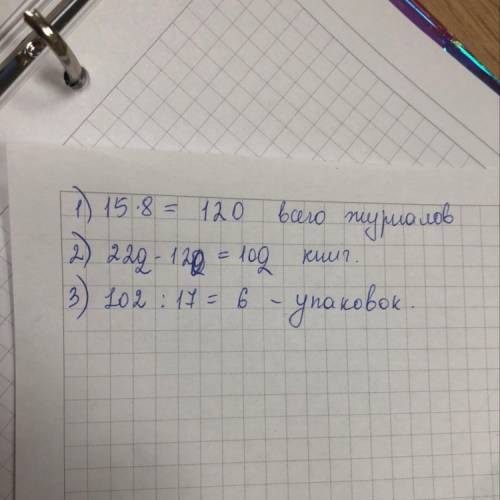 1) 15·8 = 120 всего журналов
2) 222 - 120 = 102 книг.
3) 102 : 17 = 6 - упаковок.